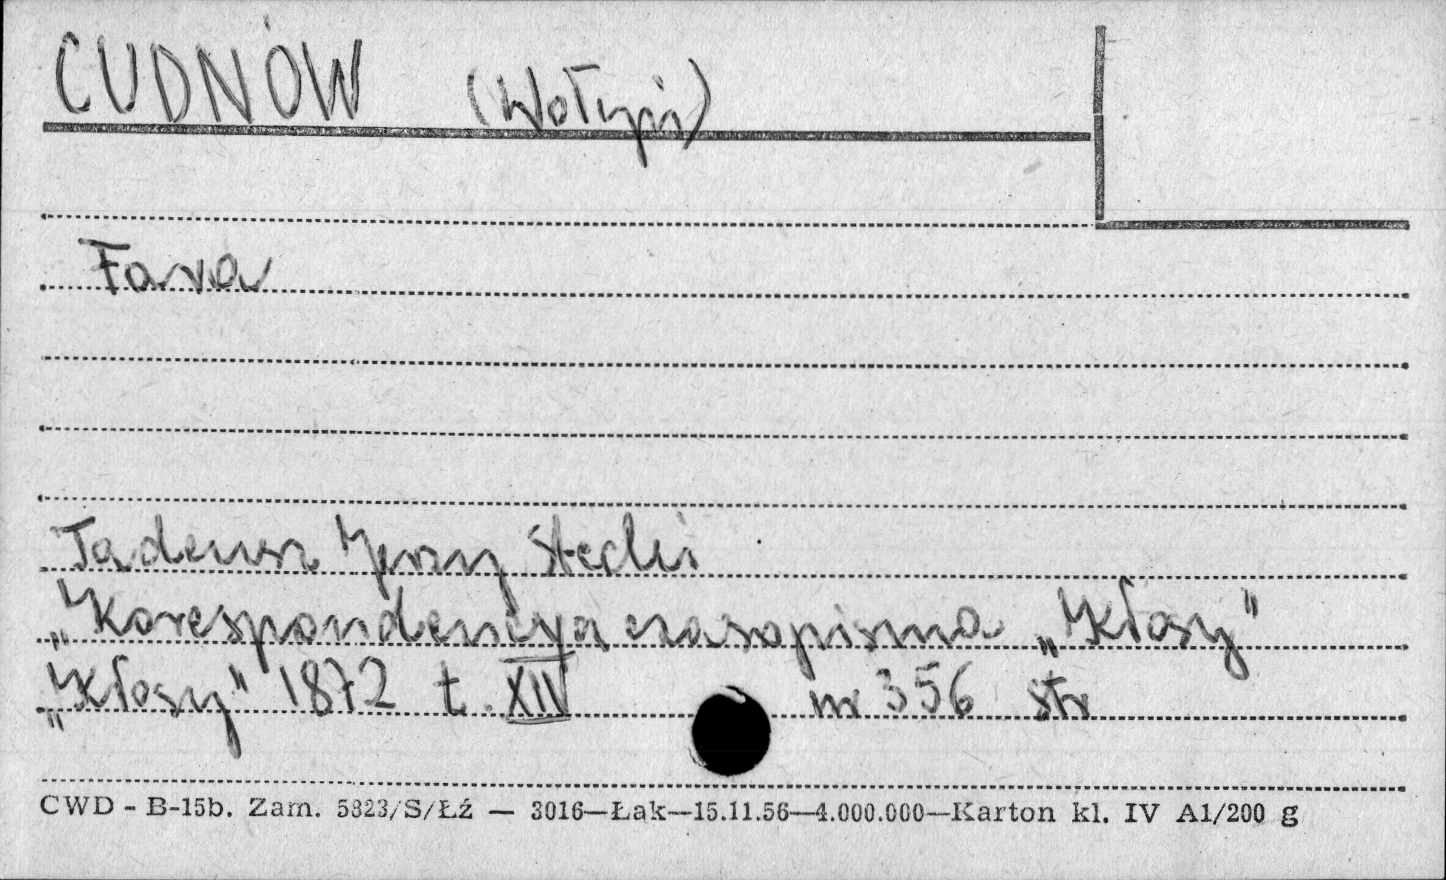 CUDNÓW (Wołyń)
Fara
Tadeusz Jerzy Stecki
„Korespondencya czasopisma „Kłosy"
„Kłosy" 1872 t. XIV nr 356 str
CWD - B-15b. Zam. 5823/S/Łź — 3016—Łąk—15.11.56—4.000.000—Karton kl. IV A1/200 g